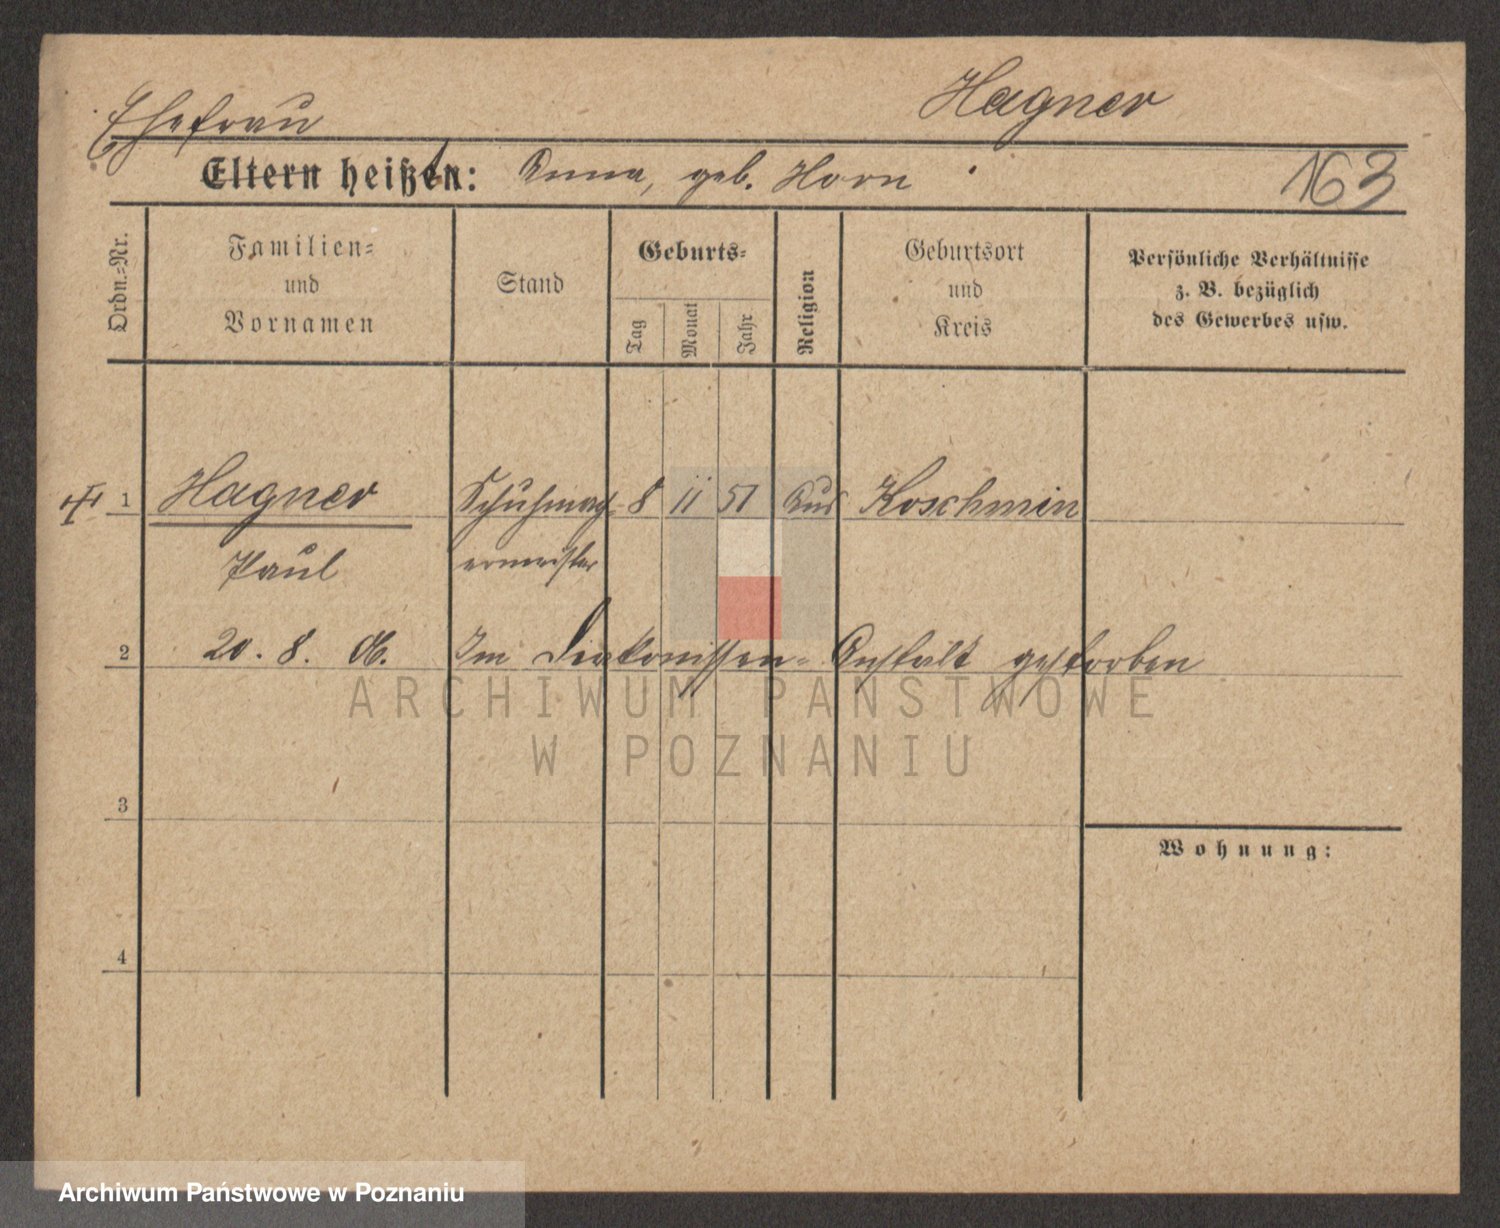 Hagner
Ehefrau
Eltern heißen: Anna, geb. Horn
163
Ordn.=Nr.
Familien=
und
Vornamen
Stand
Geburts=
Tag
Monat
Jahr
Religion
Geburtsort
und
Kreis
Persönliche Verhältnisse
z. B. bezüglich
des Gewerbes usw.
1 Hagner Schuhmach- 8 11 51 Koschmin
Paul ermeister
2 20. 8. 06. Im Diakonissen- Anstalt gestorben
ARCHIWUM PAŃSTWOWE
W POZNANIU
3
Wohnung:
4
Archiwum Państwowe w Poznaniu